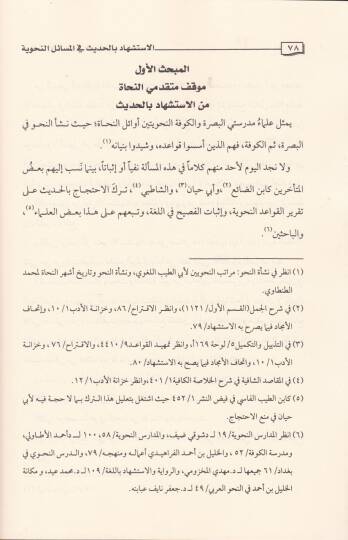 ٧٨
الاستشهاد بالحديث في المسائل النحوية
المبحث الأول
موقف متقدمي النحاة
من الاستشهاد بالحديث
يمثل علماءُ مدرستي البصرة والكوفة النحويتين أوائل النحاة؛ حيث نشأ النحو في
البصرة، ثم الكوفة، فهم الذين أسسوا قواعده، وشيدوا بنيانه(١).
ولا نجد اليوم لأحد منهم كلاماً في هذه المسألة نفياً أو إثباتاً، بينما نَسب إليهم بعضُ
المتأخرين كابن الضائع(٢)، وأبي حيان(٣)، والشاطبي(٤)، تركَ الاحتجاج بالحديث على
تقرير القواعد النحوية، وإثبات الفصيح في اللغة، وتبعهم على هذا بعض العلماء(٥)،
والباحثين(٦).
(١) انظر في نشأة النحو: مراتب النحويين لأبي الطيب اللغوي، ونشأة النحو وتاريخ أشهر النحاة لمحمد
الطنطاوي.
(٢) في شرح الجمل (القسم الأول/١١٢١)، وانظر الاقتراح/٨٦، وخزانة الأدب ١/ ١٠، وإتحاف
الأمجاد فيما يصح به الاستشهاد/٧٩.
(٣) في التذييل والتكميل ٥/ لوحة ١٦٩أ، وانظر تمهيد القواعد ٩/ ٤٤١٠، والاقتراح/٧٦، وخزانة
الأدب ١/ ١٠، وإتحاف الأمجاد فيما يصح به الاستشهاد/ ٨٠.
(٤) في المقاصد الشافية في شرح الخلاصة الكافية ٤٠١/٣، وانظر خزانة الأدب ١/ ١٢.
(٥) كابن الطيب الفاسي في فيض النشر ١/ ٤٥٢ حيث اشتغل بتعليل هذا الترك بما لا حجة فيه لأبي
حيان في منع الاحتجاج.
(٦) انظر المدارس النحوية/ ١٩ لـ د.شوقي ضيف، والمدارس النحوية/ ٥٨، ١٠٠ لـ د.أحمد
ومدرسة الكوفة/ ٥٢، والخليل بن أحمد الفراهيدي أعماله ومنهجه/ ٧٩، والدرس النحوي في
بغداد/ ٦١ جميعها لـ د.مهدي المخزومي، والرواية والاستشهاد باللغة/ ١٠٩ لـ د.محمد عيد، و مكانة
الخليل بن أحمد في النحو العربي/ ٤٩ لـ د.جعفر نايف عبابنه.